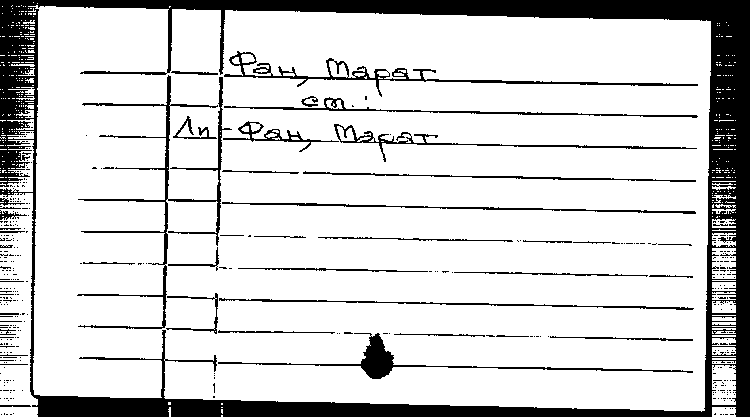 Фан, Марат
см.:
Лп-Фан, Марат